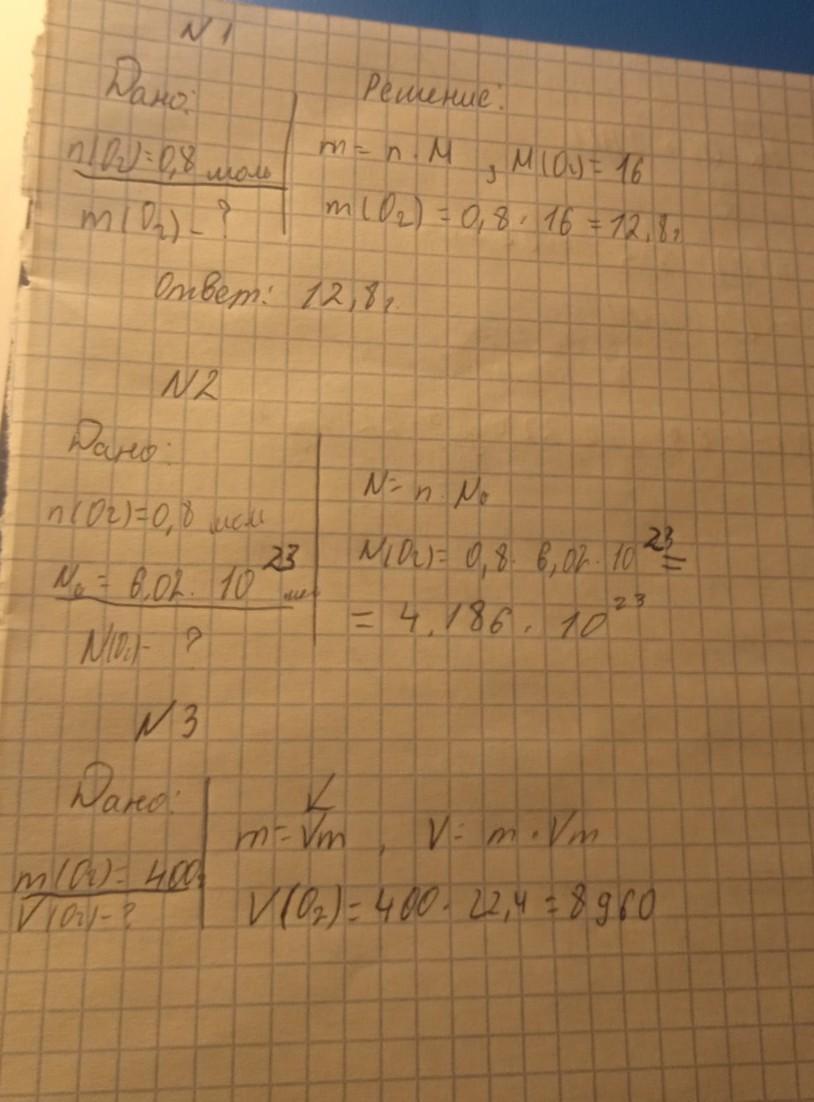 N 1
Дано:
Решение:
n(O₂)=0,8 моль
m = n · M , M(O₂) = 16
m(O₂) - ?
m(O₂) = 0,8 · 16 = 12,8г
Ответ: 12,8г.
N2
Дано:
n(O₂)=0,8 мол
N₀ = 6,02 · 10²³
N(O₂) - ?
N = n · N₀
N(O₂) = 0,8 · 6,02 · 10²³ =
= 4,186 · 10²³
N 3
Дано:
m(O₂) = 400г
V(O₂) - ?
m = V/Vm , V = m · Vm
V(O₂) = 400 · 22,4 = 8960